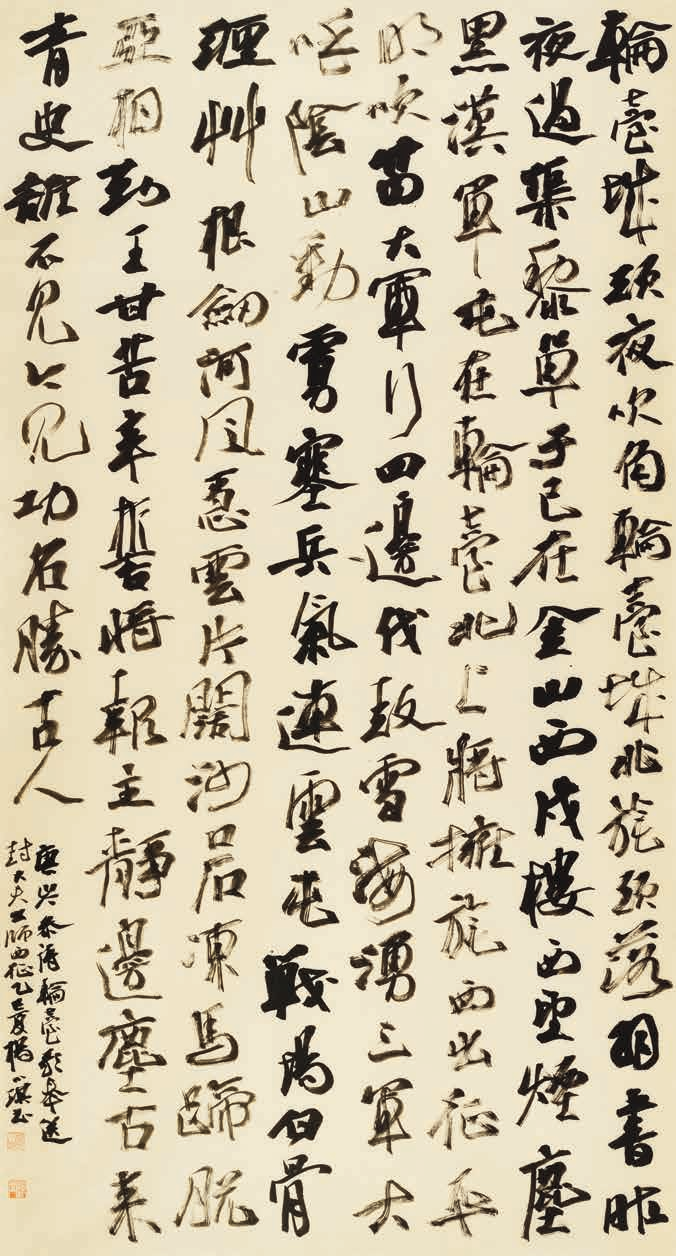 輪臺城頭夜吹角輪臺城北旄頭落羽書昨
夜過渠黎單于已在金山西戍樓西望煙塵
黑漢軍屯在輪臺北上將擁旄西出征平
明吹笛大軍行四邊伐鼓雪海湧三軍大
呼陰山動虜塞兵氣連雲屯戰場白骨
纏艸根劍河風急雲片闊沙口石凍馬蹄脫
亞相勤王甘苦辛誓將報主靜邊塵古來
青史誰不見今見功名勝古人
唐岑參詩輪臺歌奉送
封大夫出師西征乙巳夏楊